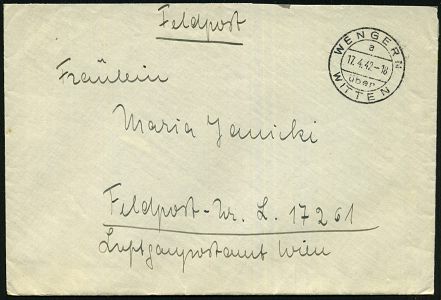 Feldpost
WENGERN
a
17.4.42-18
über
WITTEN
Fräulein
Maria Janicki
Feldpost-Nr. L. 17261
Luftgaupostamt Wien